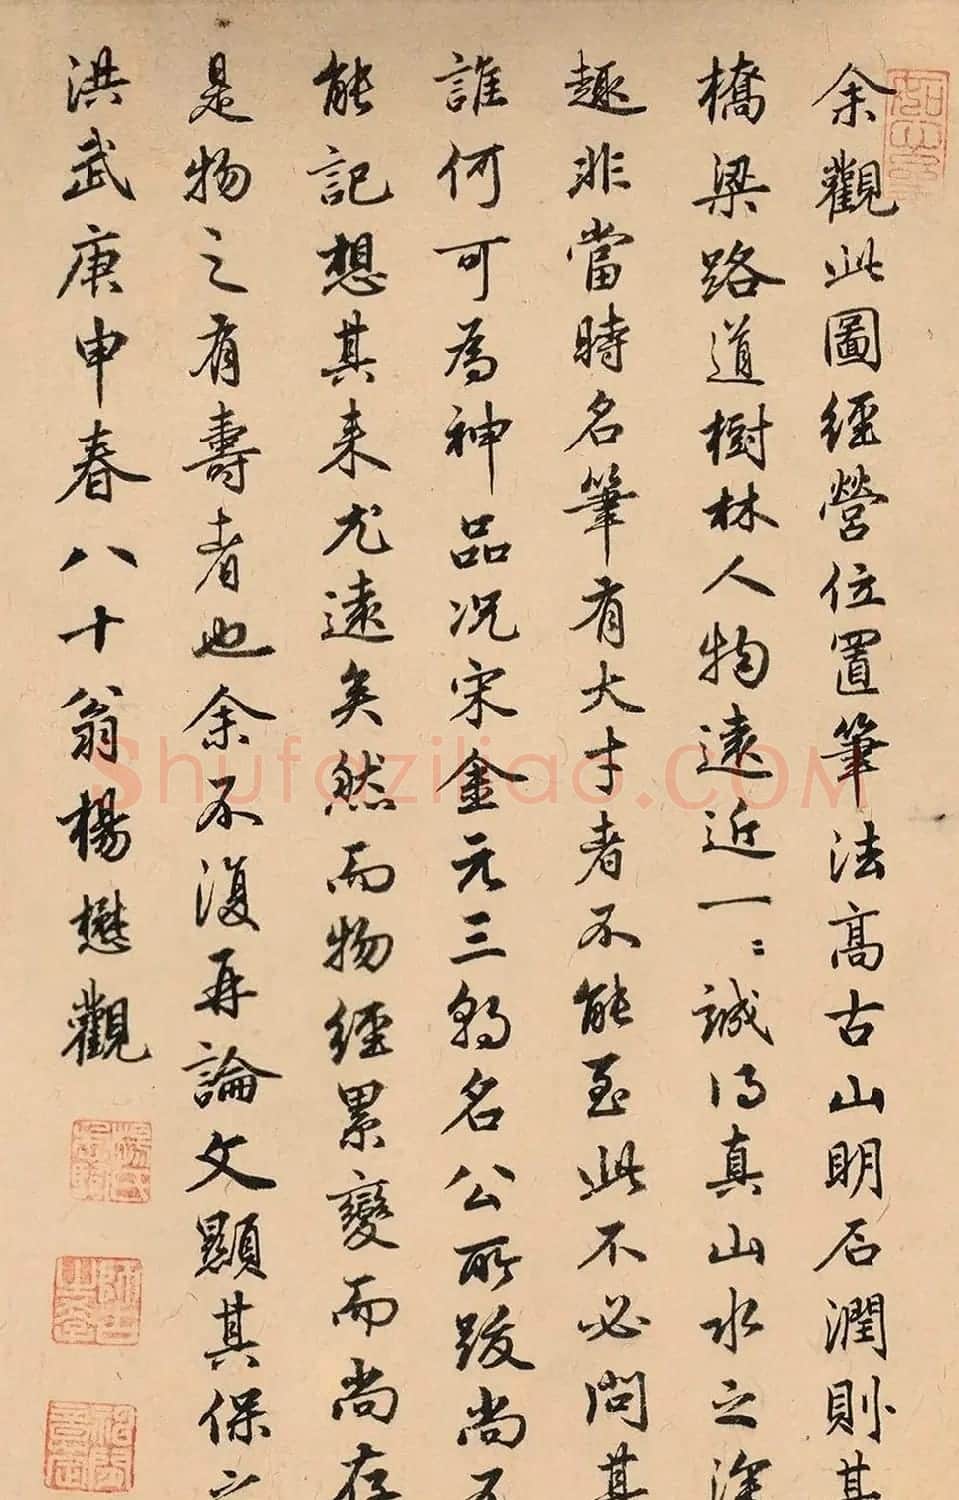 余觀此圖經營位置筆法高古山明石潤則其
橋梁路道樹林人物遠近一〻誠得真山水之深
趣非當時名筆有大才者不能至此不必問其
誰何可為神品况宋金元三朝名公所跋尚不
能記想其來尤遠矣然而物經累變而尚存
是物之有壽者也余不復再論文顯其保之
洪武庚申春八十翁楊懋觀
shufaziliao.COM